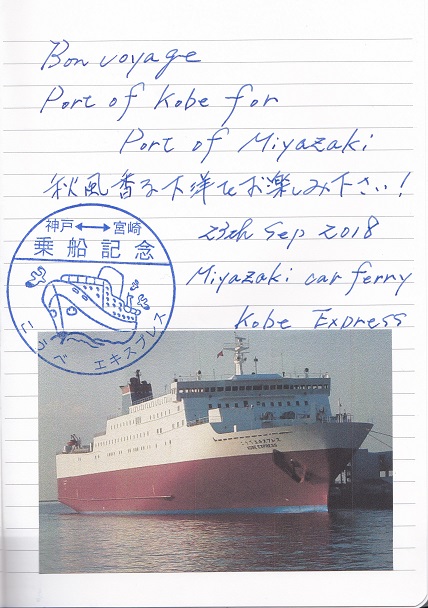 Bon voyage
Port of Kobe for
Port of Miyazaki
秋風香る 洋をお楽しみ下さい!
23th Sep 2018
神戸↔宮崎
乗船記念
こうべ エキスプレス
Miyazaki car ferry
Kobe Express
こうべエキスプレス
KOBE EXPRESS